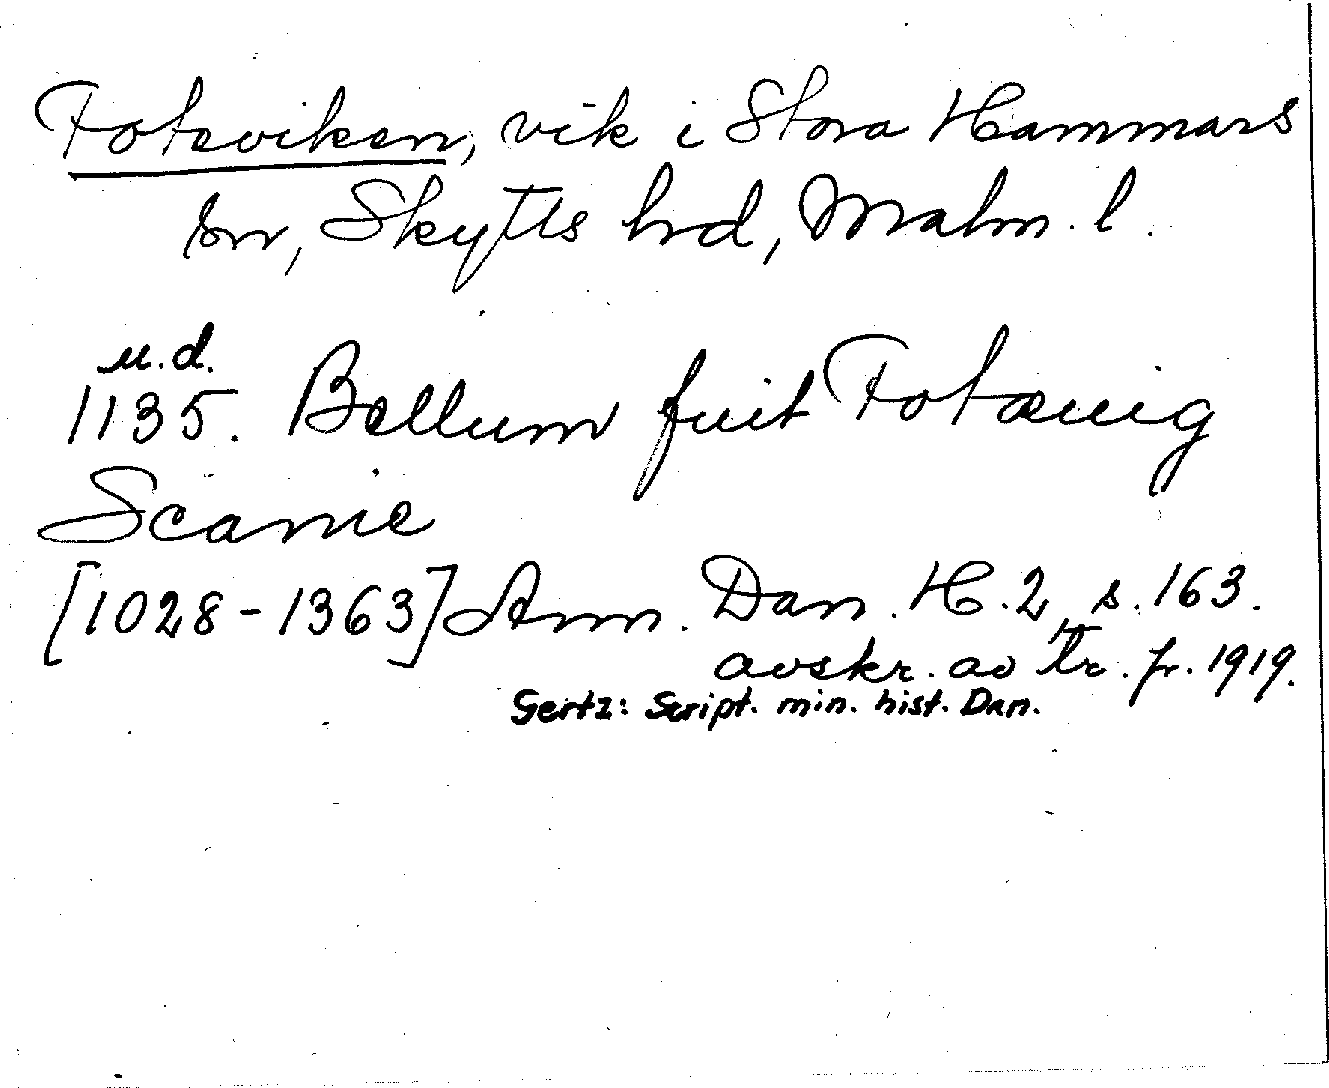 Foteviken, vik i Stora Hammars
sn, Skytts hd, Malm. l.
u.d.
1135. Bellum fuit Fotæuig
Scanie
[1028-1363] Ann. Dan. H. 2, s. 163.
avskr. av tr. fr. 1919.
Gertz: Script. min. hist. Dan.